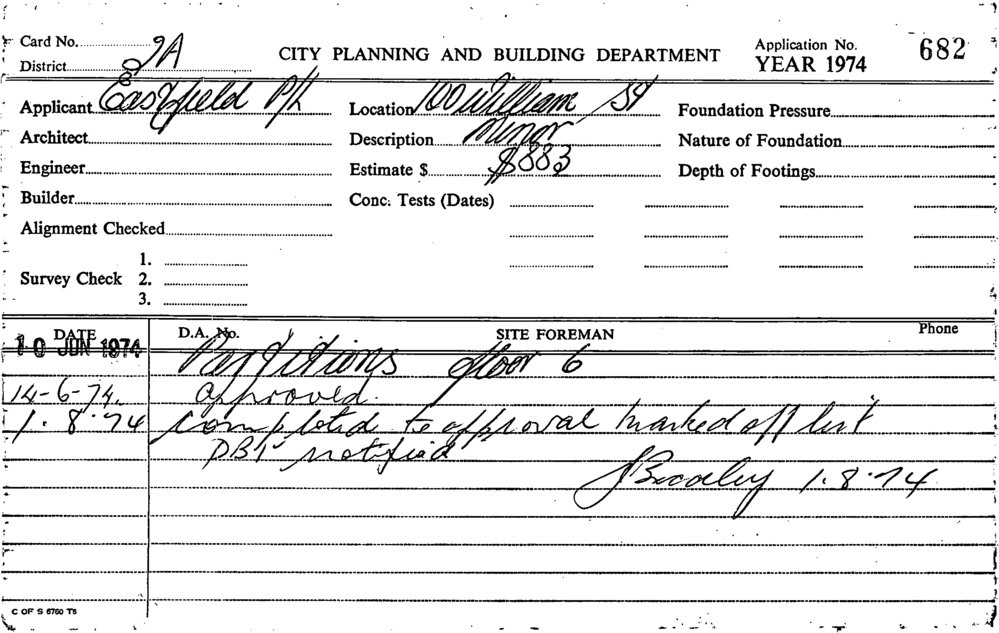 Card No. 2A CITY PLANNING AND BUILDING DEPARTMENT Application No. 682
District YEAR 1974
Applicant Eastfield P/L Location 100 William St Foundation Pressure
Architect Description Minor Nature of Foundation
Engineer Estimate $ $883 Depth of Footings
Builder Conc. Tests (Dates)
Alignment Checked
1.
Survey Check 2.
3.
DATE D.A. No. SITE FOREMAN Phone
10 JUN 1974 Partitions floor 6
14-6-74. approved.
1.8.74 completed to approval marked off list
DBI notified
1.8.74
C OF S 6760 T6